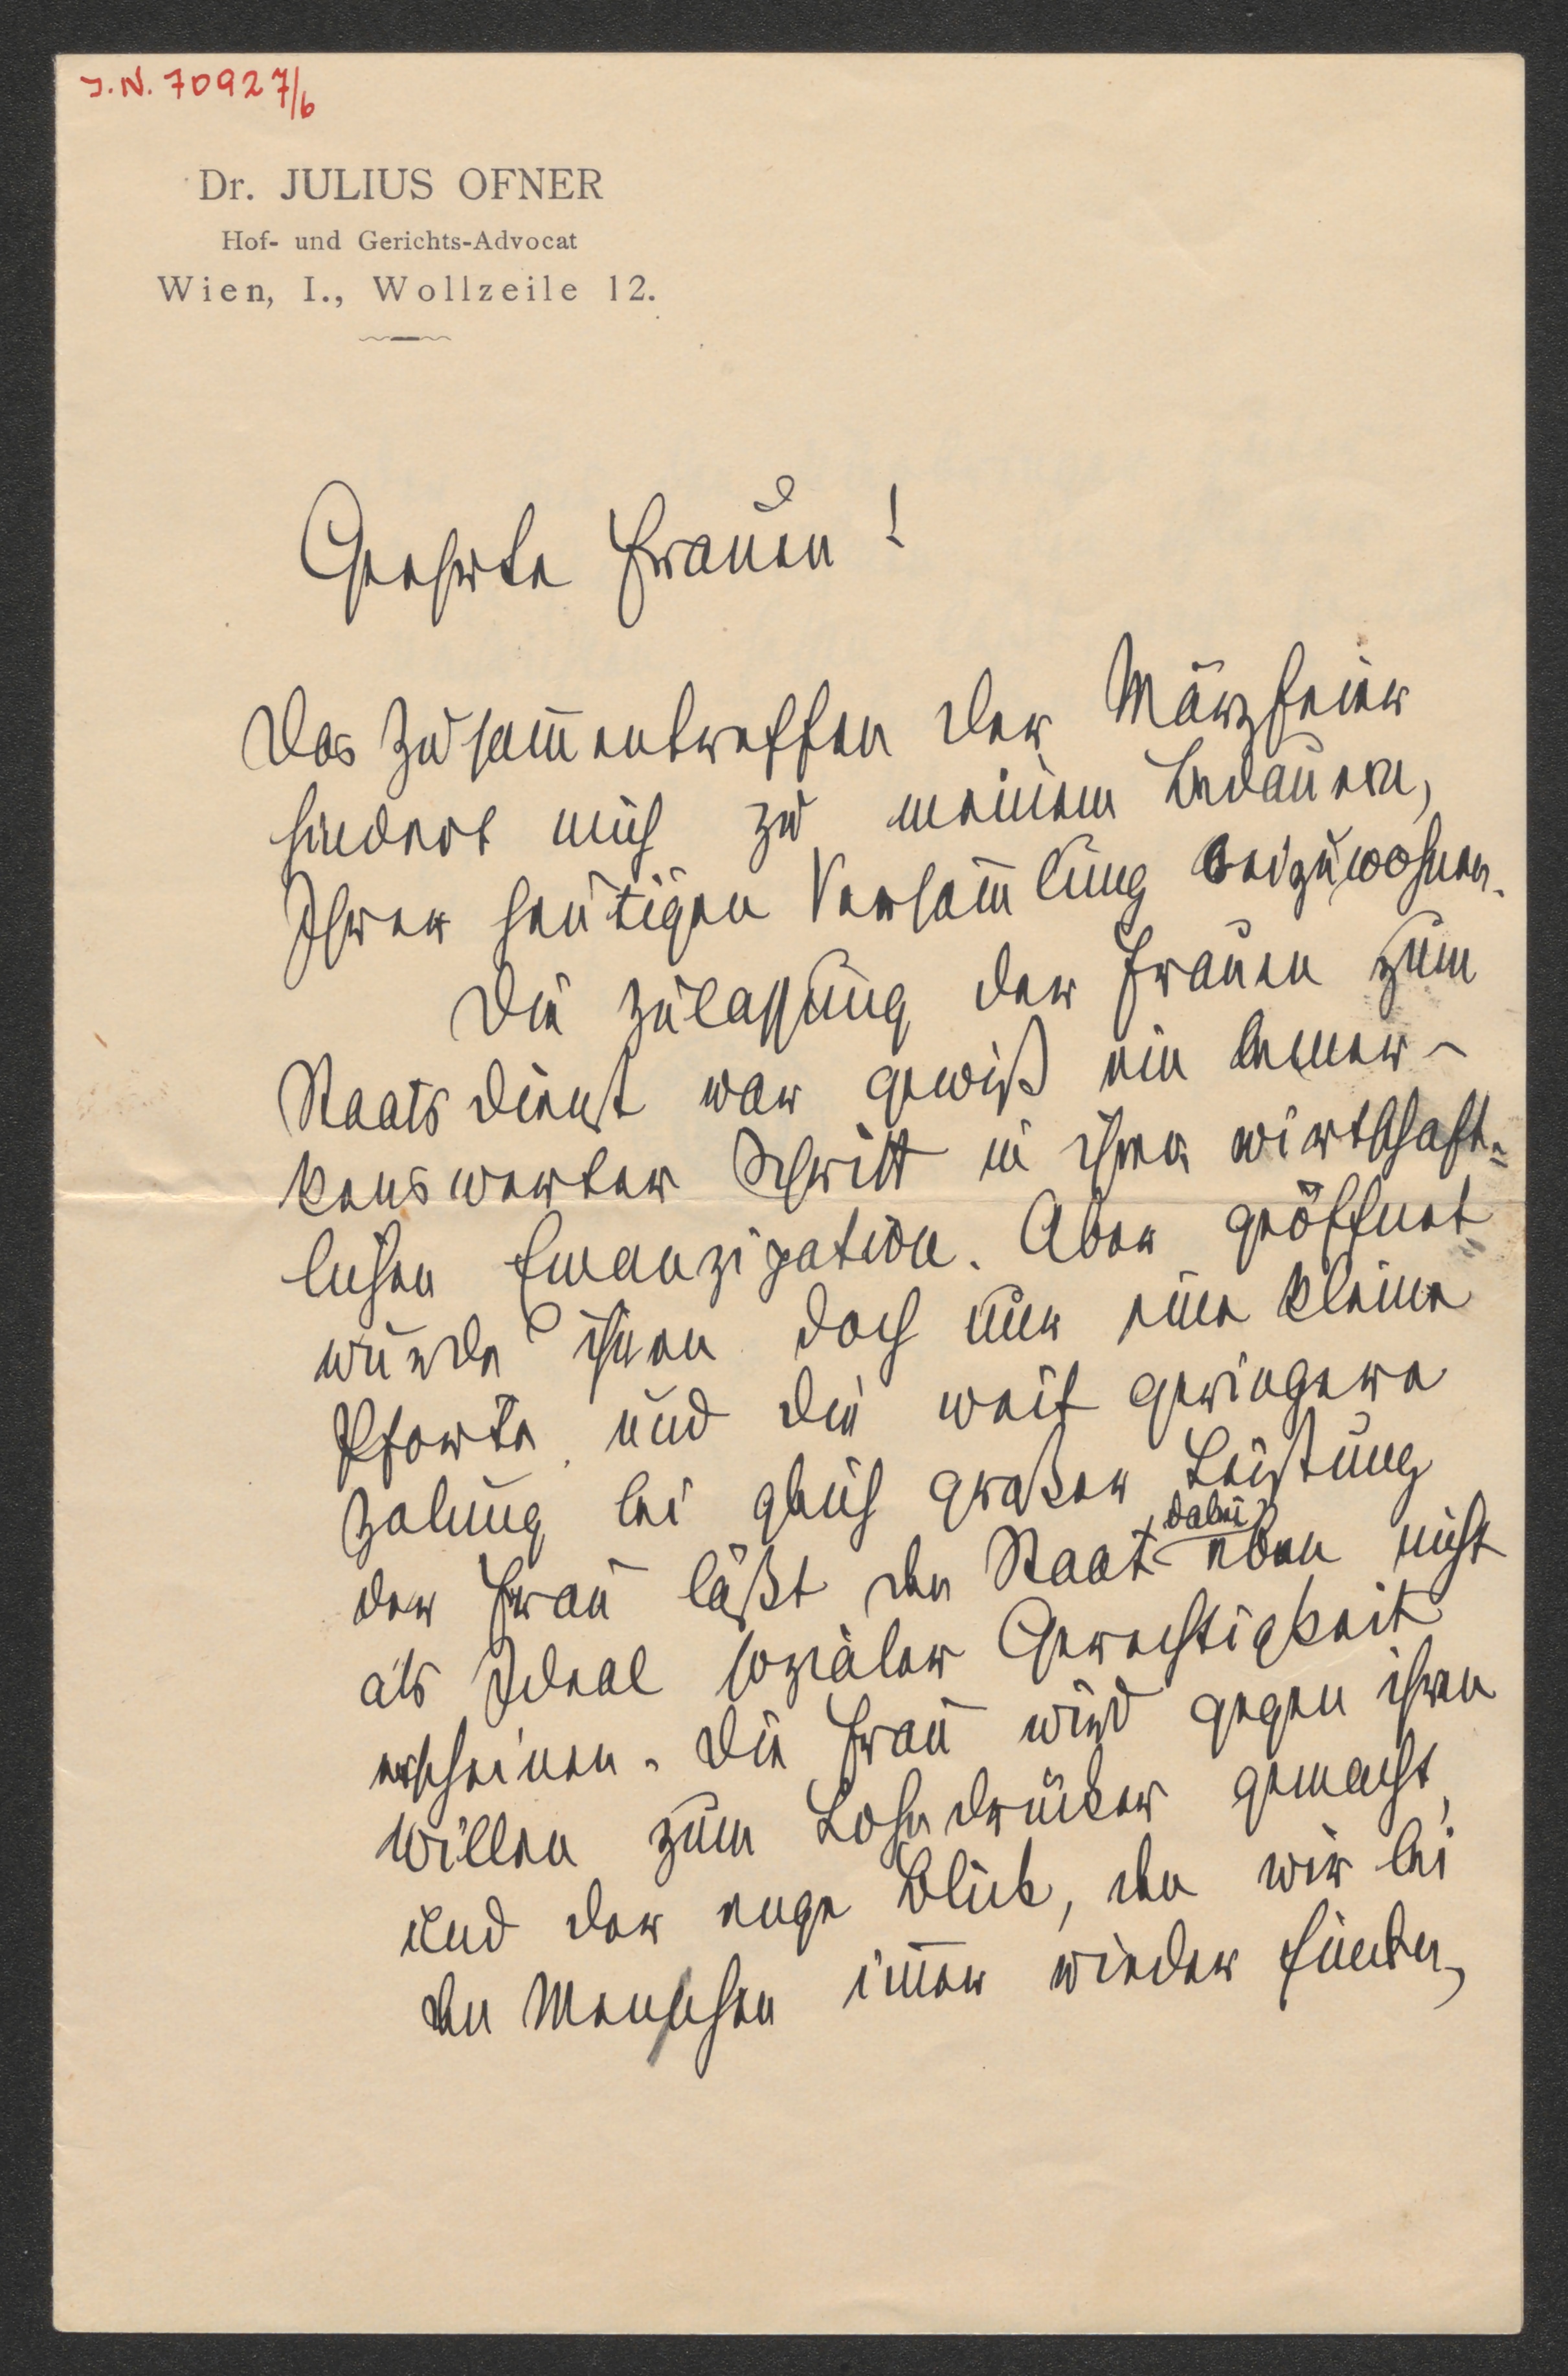 J.N. 70927/6
Dr. JULIUS OFNER
Hof- und Gerichts-Advocat
Wien, I., Wollzeile 12.
Geehrte Frauen!
Das Zusam̅entreffen der Märzfeier
hindert mich zu meinem Bedauern,
Ihrer heutigen Versam̅lung beizuwohnen.
Die Zulassung der Frauen zum
Staatsdienst war gewiß ein bemer-
kenswerter Schritt in ihrer wirtschaft=
lichen Emanzipation. Aber geöffnet
wurde ihnen doch nur eine kleine
Pforte und die weit geringere
Zalung bei gleich großer Leistung
der Frau läßt den Staat dabei eben nicht
als Ideal sozialer Gerechtigkeit
erscheinen. Die Frau wird gegen ihren
Willen zum Lohndrücker gemacht,
und der enge Blick, den wir bei
den Menschen im̅er wieder finden,